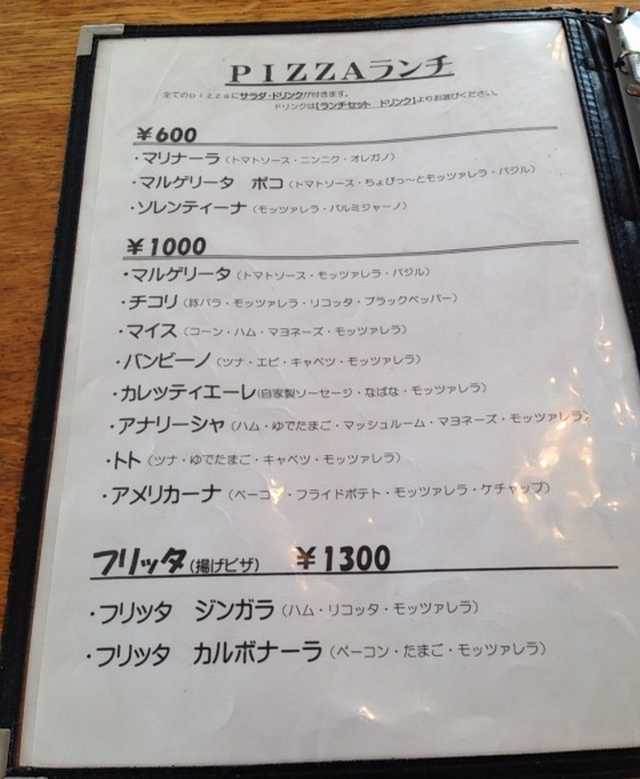 PIZZAランチ
全てのpizzaにサラダ・ドリンクが付きます。
ドリンクは【ランチセット　ドリンク】よりお選びください。
￥600
・マリナーラ（トマトソース・ニンニク・オレガノ）
・マルゲリータ　ポコ（トマトソース・ちょびっ～とモッツァレラ・バジル）
・ソレンティーナ（モッツァレラ・パルミジャーノ）
￥1000
・マルゲリータ（トマトソース・モッツァレラ・バジル）
・チコリ（豚バラ・モッツァレラ・リコッタ・ブラックペッパー）
・マイス（コーン・ハム・マヨネーズ・モッツァレラ）
・バンビーノ（ツナ・エビ・キャベツ・モッツァレラ）
・カレッティエーレ（自家製ソーセージ・なばな・モッツァレラ）
・アナリーシャ（ハム・ゆでたまご・マッシュルーム・マヨネーズ・モッツァレラ）
・トト（ツナ・ゆでたまご・キャベツ・モッツァレラ）
・アメリカーナ（ベーコン・フライドポテト・モッツァレラ・ケチャップ）
フリッタ（揚げピザ）　￥1300
・フリッタ　ジンガラ（ハム・リコッタ・モッツァレラ）
・フリッタ　カルボナーラ（ベーコン・たまご・モッツァレラ）